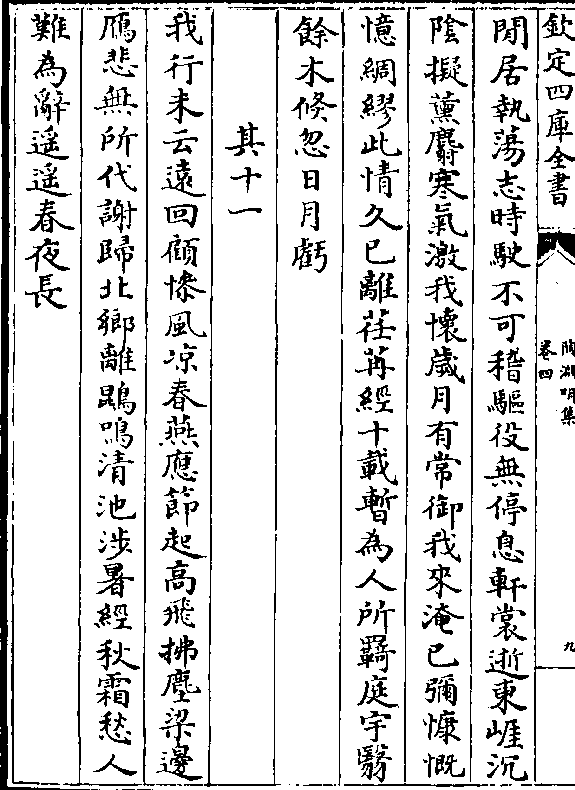 欽定四庫全書
陶淵明集
卷四
九
閒居執蕩志時駛不可稽驅役無停息軒裳逝東崖沉
陰擬薰麝寒氣激我懷歲月有常御我來淹已彌慷慨
憶綢繆此情久已離荏苒經十載暫為人所羈庭宇翳
餘木倐忽日月虧
其十一
我行未云遠回顧慘風凉春燕應節起高飛拂塵梁邊
鴈悲無所代謝歸北鄉離鵾鳴清池涉暑經秋霜愁人
難為辭遥遥春夜長